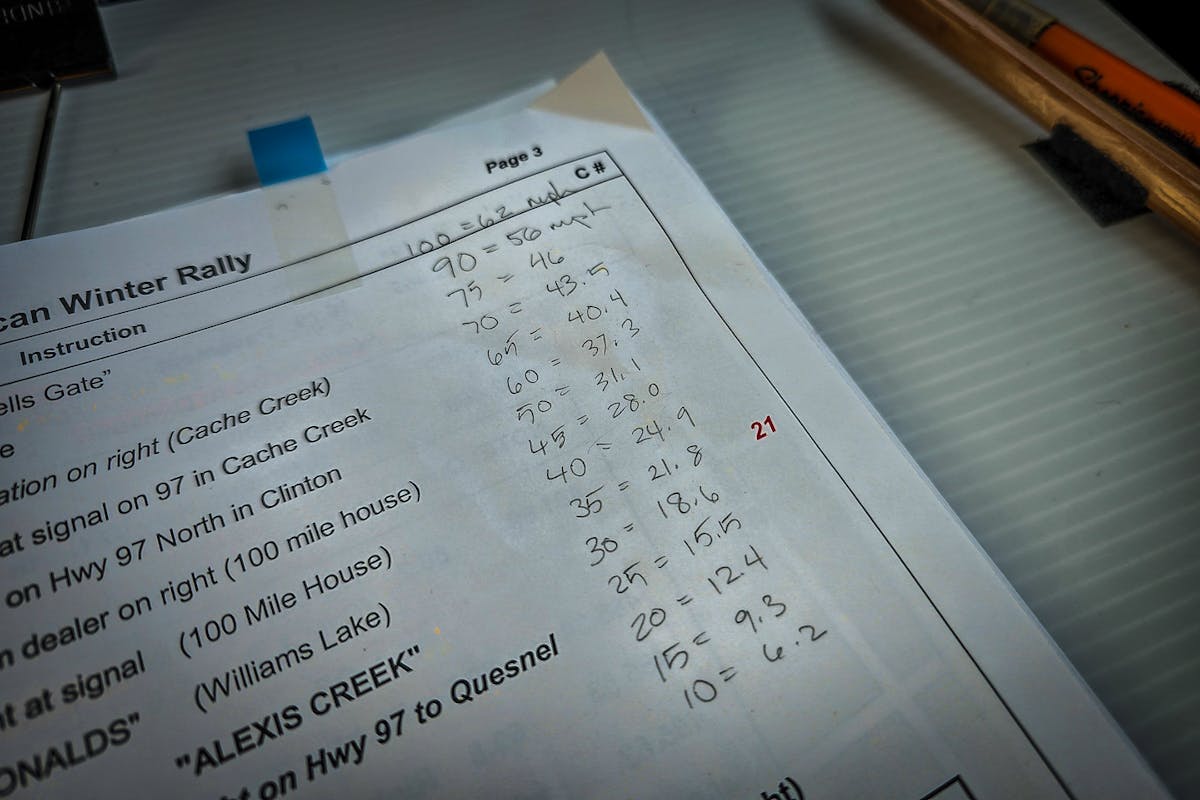 Page 3
can Winter Rally
C #
Instruction
100 = 62 mph
90 = 56 mph
75 = 46
70 = 43.5
65 = 40.4
60 = 37.3
50 = 31.1
45 = 28.0
40 = 24.9
35 = 21.8
30 = 18.6
25 = 15.5
20 = 12.4
15 = 9.3
10 = 6.2
ells Gate"
e
ation on right (Cache Creek)
at signal on 97 in Cache Creek
on Hwy 97 North in Clinton
n dealer on right (100 mile house)
21
t at signal (100 Mile House)
ONALDS" (Williams Lake)
"ALEXIS CREEK"
t on Hwy 97 to Quesnel
ht)